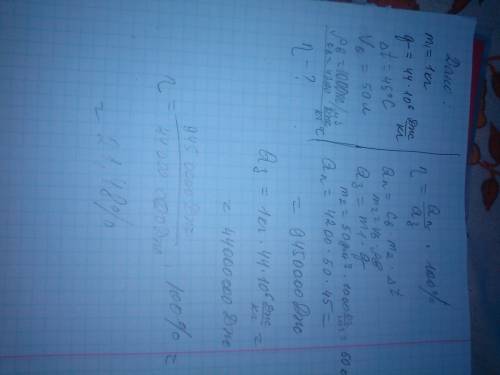 Дано:
m₁ = 1кг
q = 44·10⁶ Дж/кг
Δt = 45°C
V₆ = 50л
ρв = 1000кг/м³
Cв = 4200 Дж/кг°C
η - ?
η = Qп/Qз · 100%
Qп = Cв m₂ · Δt
m₂ = Vв · ρв
Qз = m₁ · q
m₂ = 50дм³ · 1000 кг/м³ = 50
Qп = 4200 · 50 · 45 =
= 9450000 Дж
Qз = 1кг · 44·10⁶ Дж/кг =
= 44000000 Дж
η = 945 0000 Дж / 44000 000 Дж · 100% =
= 21,48%